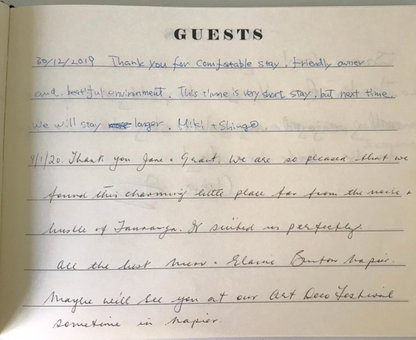 GUESTS
30/12/2019 Thank you for comfotable stay, friendly owner
and, beatiful environment. This time is very short stay, but next time
we will stay larger. Miki + Shingo
4/1/20. Thank you Jane + Grant. We are so pleased that we
found this charming little place far from the noise +
bustle of Tauranga. It suited us perfectly.
All the best + Elaine Burton Napier.
Maybe we'll see you at our Art Deco Festival
sometime in Napier.